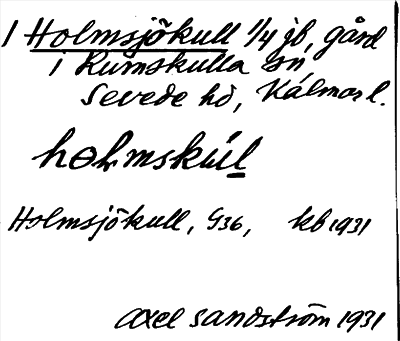 1 Holmsjökull 1/4 jb, gård
i Rumskulla sn
Sevede hd, Kalmar l.
holmskúl
Holmsjökull, G36, kb 1931
Axel Sandström 1931